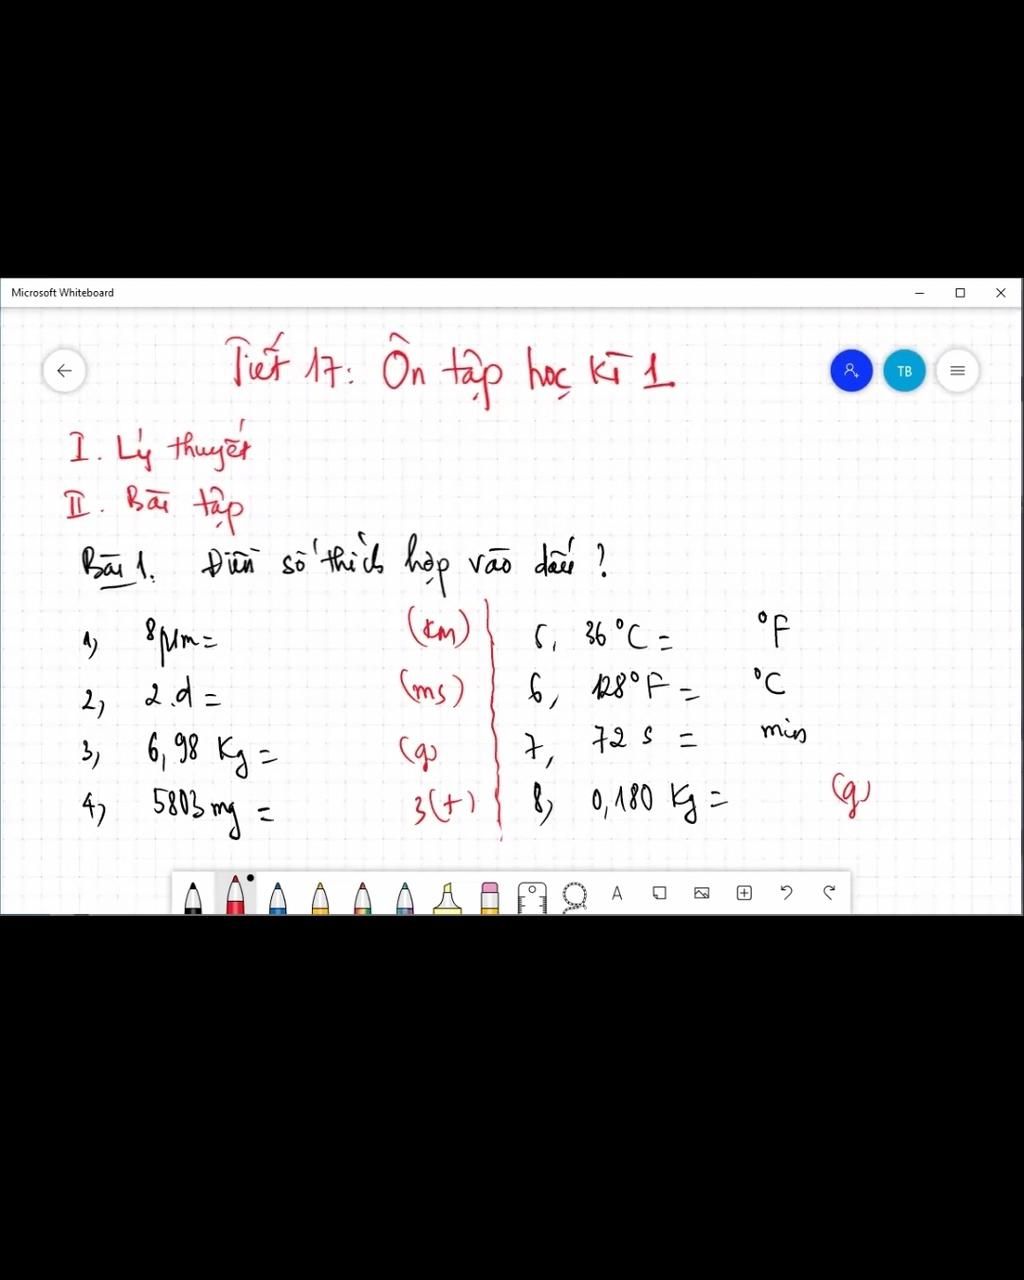 Microsoft Whiteboard
Tiết 17: Ôn tập học kì 1
TB
I. Lý thuyết
II. Bài tập
Bài 1. Điền số thích hợp vào dấu ?
1, 8µm = (km)
2, 2.d = (ms)
3, 6,98 Kg = (g)
4, 5803 mg = 3(t)
5, 36°C = °F
6, 128°F = °C
7, 72 s = min
8, 0,180 Kg = (g)
A